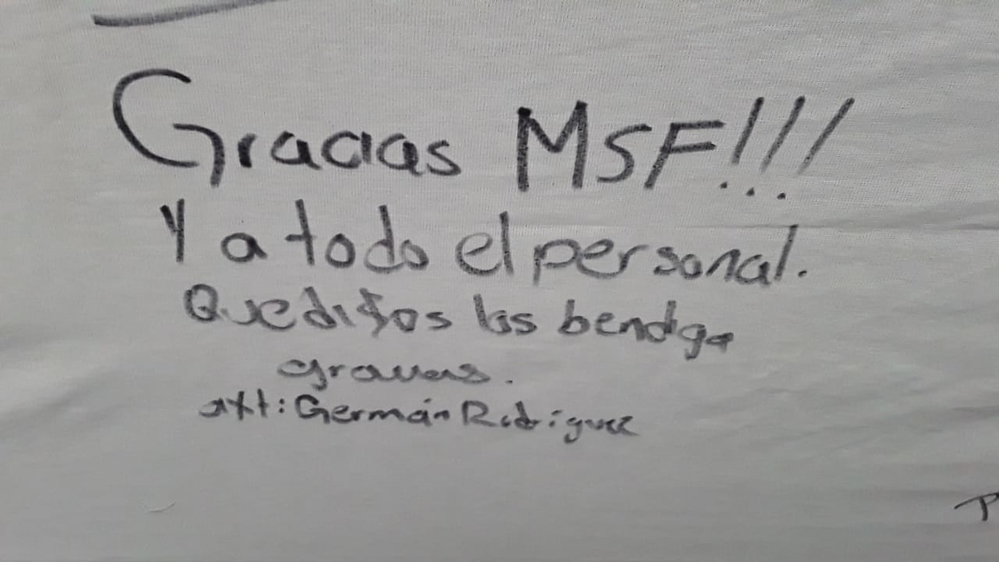 Gracias MSF!!!
Y a todo el personal.
Que diosito los bendiga
gracias.
att: Germán Rodríguez